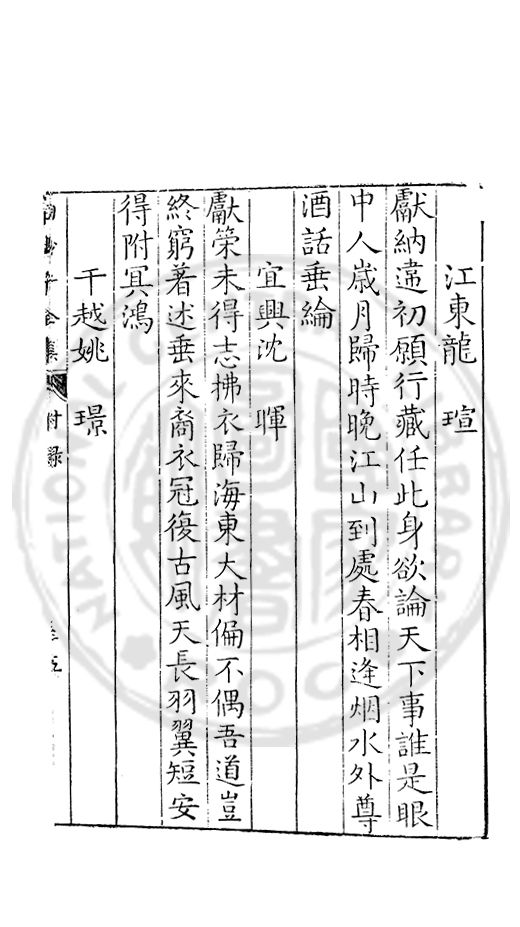 江東龍 瑄
獻納違初願行藏任此身欲論天下事誰是眼
中人歲月歸時晚江山到處春相逢烟水外尊
酒話垂綸
宜興沈 暉
獻策未得志拂衣歸海東大材偏不偶吾道豈
終窮著述垂來裔衣冠復古風天長羽翼短安
得附冥鴻
干越姚 璟
附錄